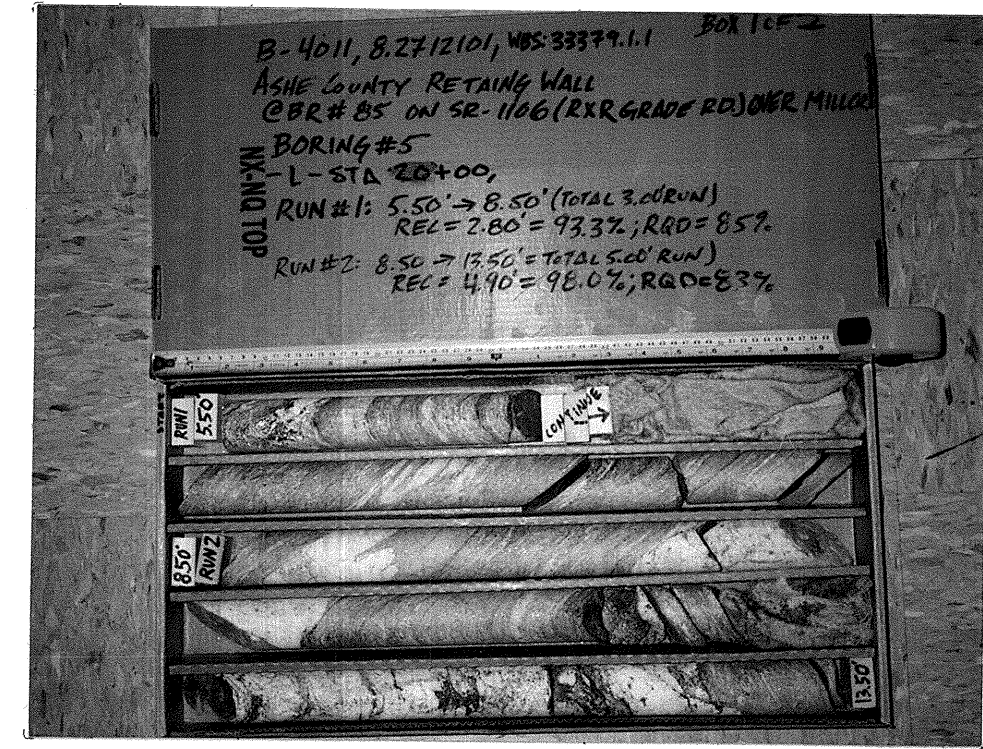 BOX 1 OF 2
B-4011, 8.2712101, WBS: 33379.1.1
ASHE COUNTY RETAING WALL
@BR# 85 ON SR-1106 (RXR GRADE RD) OVER
BORING #5
-L- STA 20+00,
NX-NQ TOP
RUN #1: 5.50' → 8.50' (TOTAL 3.00' RUN)
REC = 2.80' = 93.3%; RQD = 85%
RUN #2: 8.50 → 13.50' = TOTAL 5.00' RUN)
REC = 4.90' = 98.0%; RQD = 83%
START
RUN 1
5.50'
CONTINUE →
8.50'
RUN 2
13.50'